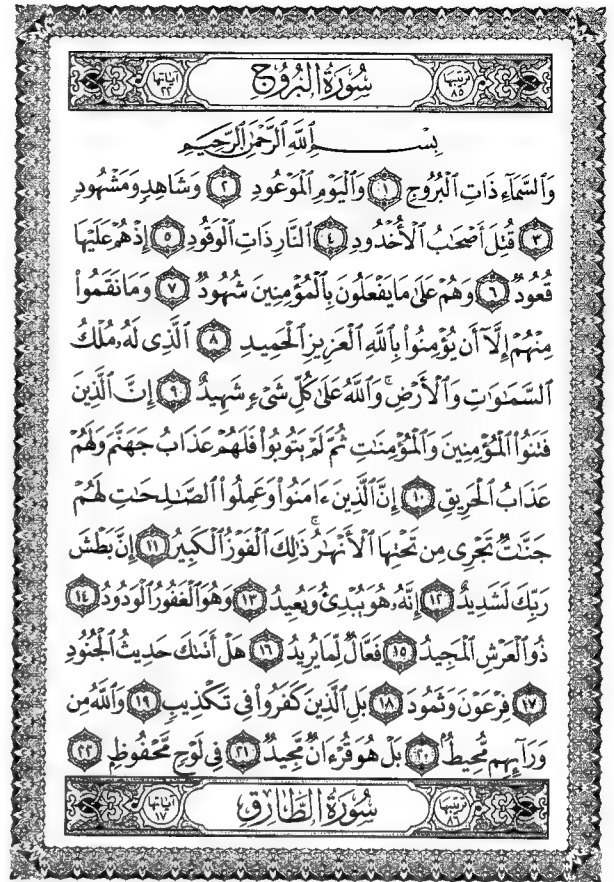 ترتيبها ٨٥ سُورَةُ الْبُرُوجِ آياتها ٢٢
بِسْمِ اللَّهِ الرَّحْمَٰنِ الرَّحِيمِ
وَالسَّمَاءِ ذَاتِ الْبُرُوجِ ١ وَالْيَوْمِ الْمَوْعُودِ ٢ وَشَاهِدٍ وَمَشْهُودٍ
٣ قُتِلَ أَصْحَٰبُ الْأُخْدُودِ ٤ النَّارِ ذَاتِ الْوَقُودِ ٥ إِذْ هُمْ عَلَيْهَا
قُعُودٌ ٦ وَهُمْ عَلَىٰ مَا يَفْعَلُونَ بِالْمُؤْمِنِينَ شُهُودٌ ٧ وَمَا نَقَمُوا
مِنْهُمْ إِلَّا أَن يُؤْمِنُوا بِاللَّهِ الْعَزِيزِ الْحَمِيدِ ٨ الَّذِي لَهُ مُلْكُ
السَّمَٰوَٰتِ وَالْأَرْضِ ۚ وَاللَّهُ عَلَىٰ كُلِّ شَيْءٍ شَهِيدٌ ٩ إِنَّ الَّذِينَ
فَتَنُوا الْمُؤْمِنِينَ وَالْمُؤْمِنَٰتِ ثُمَّ لَمْ يَتُوبُوا فَلَهُمْ عَذَابُ جَهَنَّمَ وَلَهُمْ
عَذَابُ الْحَرِيقِ ١٠ إِنَّ الَّذِينَ ءَامَنُوا وَعَمِلُوا الصَّٰلِحَٰتِ لَهُمْ
جَنَّٰتٌ تَجْرِي مِن تَحْتِهَا الْأَنْهَٰرُ ۚ ذَٰلِكَ الْفَوْزُ الْكَبِيرُ ١١ إِنَّ بَطْشَ
رَبِّكَ لَشَدِيدٌ ١٢ إِنَّهُ هُوَ يُبْدِئُ وَيُعِيدُ ١٣ وَهُوَ الْغَفُورُ الْوَدُودُ ١٤
ذُو الْعَرْشِ الْمَجِيدُ ١٥ فَعَّالٌ لِّمَا يُرِيدُ ١٦ هَلْ أَتَىٰكَ حَدِيثُ الْجُنُودِ
١٧ فِرْعَوْنَ وَثَمُودَ ١٨ بَلِ الَّذِينَ كَفَرُوا فِي تَكْذِيبٍ ١٩ وَاللَّهُ مِن
وَرَآئِهِم مُّحِيطٌ ٢٠ بَلْ هُوَ قُرْءَانٌ مَّجِيدٌ ٢١ فِي لَوْحٍ مَّحْفُوظٍ ٢٢
ترتيبها ٨٦ سُورَةُ الطَّارِقِ آياتها ١٧